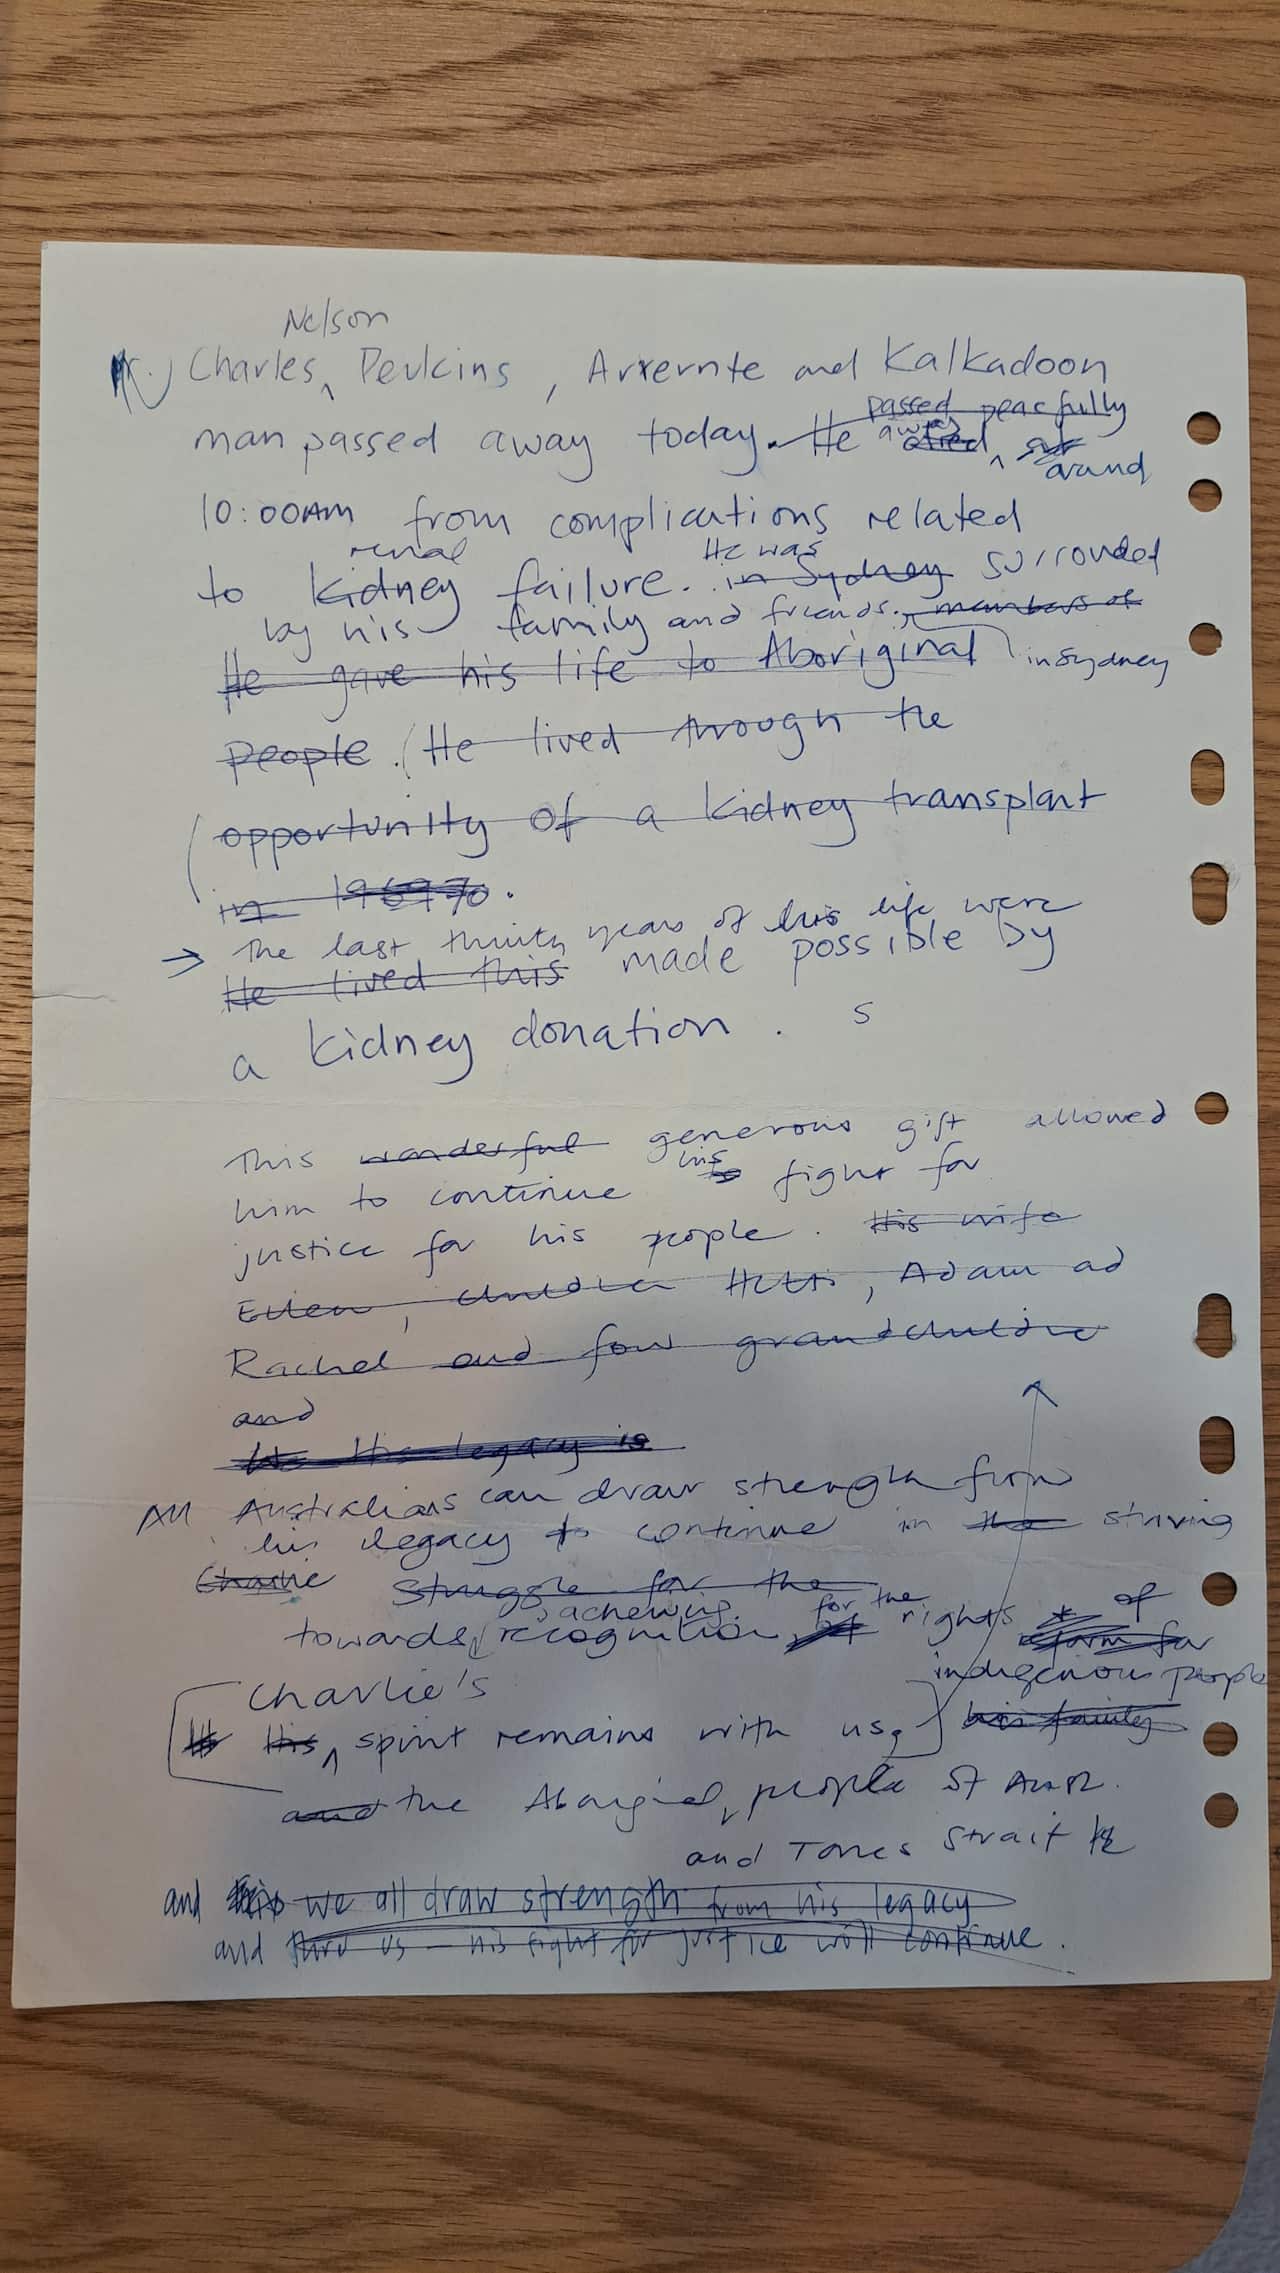 Nelson
Charles Perkins, Arrernte and Kalkadoon
passed peacefully
man passed away today. He away died,
around
10:00AM from complications related
renal He was
to kidney failure. in Sydney surrouded
by his family and friends. members of
He gave his life to Aboriginal in Sydney
people. (He lived through the
opportunity of a kidney transplant
in 196970.
→ The last thirty years of his life were
He lived this made possible by
a kidney donation. s
This wonderful generous gift allowed
his
him to continue fight for
justice for his people. His wife
Eileen, children Hetti, Adam ad
Rachel and four grandchildre
and
His legacy is
All Australians can draw strength from
his legacy to continue in the striving
Charlie struggle for the
achewing for the of
towards recognition rights reform for
indigenous people
Charlie's
His spirit remains with us, his family
and the Aboriginal people of Aust.
and Torres Strait
and we all draw strength from his legacy
and thru us – his fight for justice will continue.